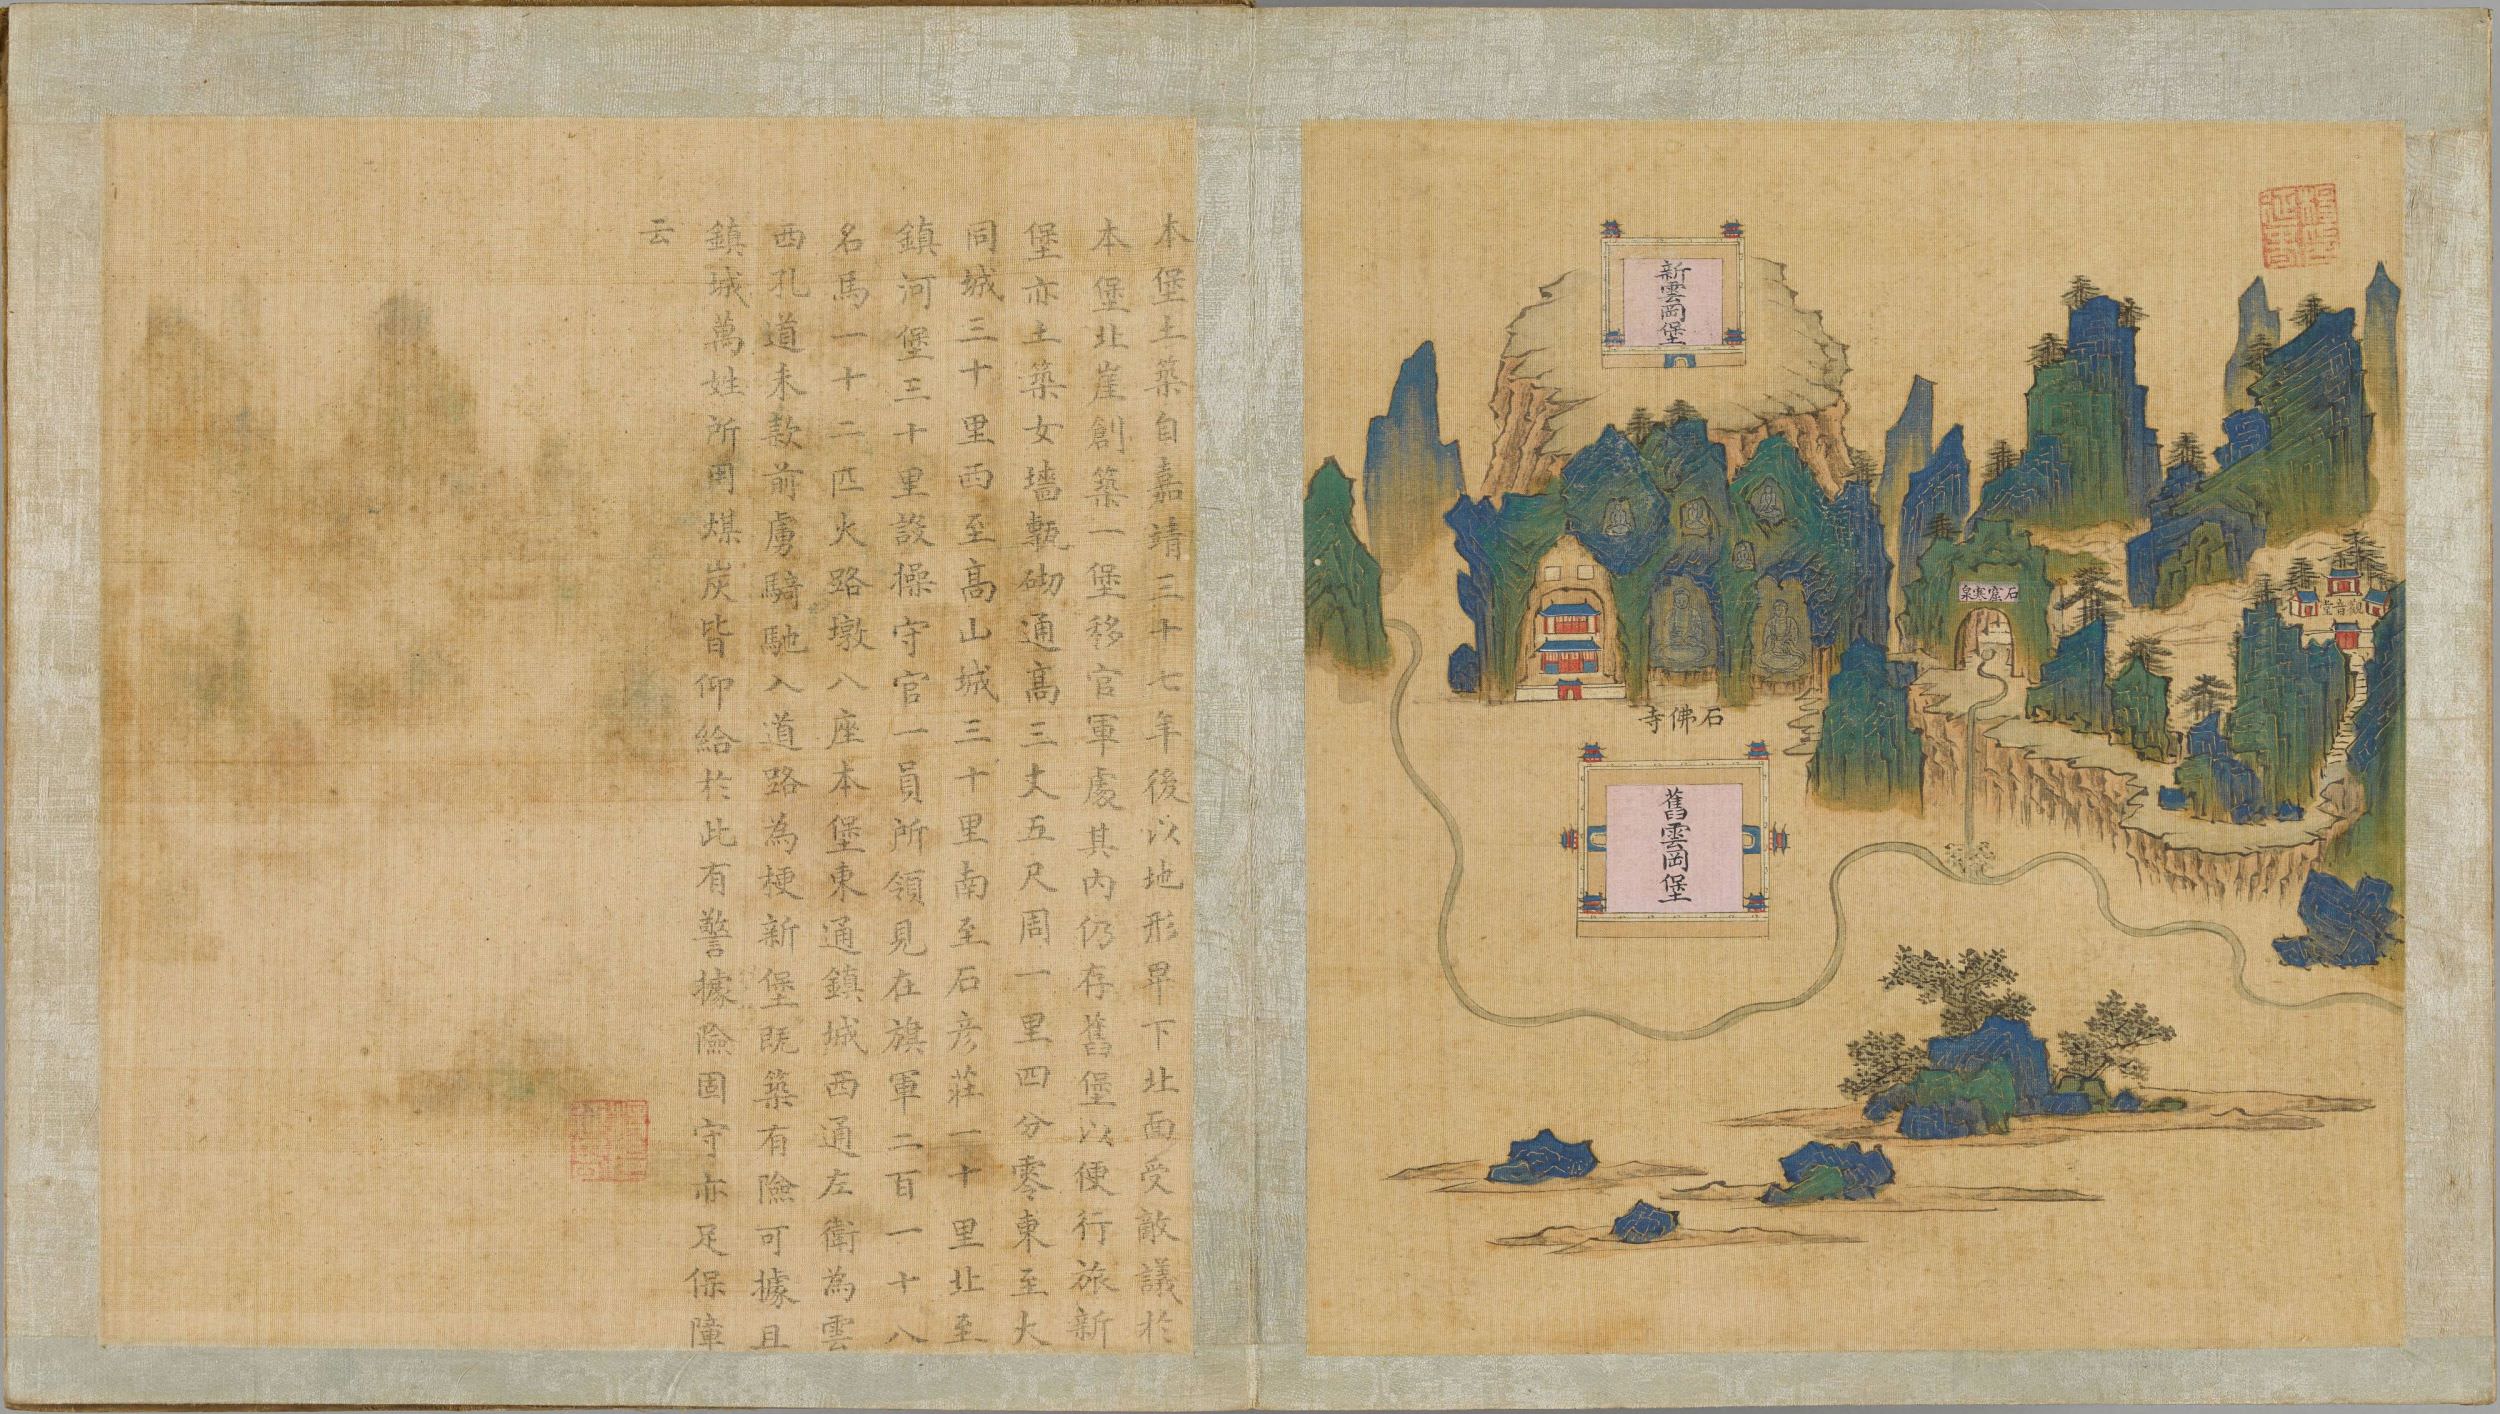 新雲岡堡
石窟寒泉
觀音堂
石佛寺
舊雲岡堡
本堡土築自嘉靖三十七年後以地形卑下北面受敵議於
本堡北崖創築一堡移官軍處其內仍存舊堡以便行旅新
堡亦土築女墻甎砌通高三丈五尺周一里四分零東至大
同城三十里西至高山城三十里南至石彥莊一十里北至
鎮河堡三十里設操守官一員所領見在旗軍二百一十八
名馬一十二匹火路墩八座本堡東通鎮城西通左衛為雲
西孔道未款前虜騎馳入道路為梗新堡既築有險可據且
鎮城萬姓所用煤炭皆仰給於此有警據險固守亦足保障
云